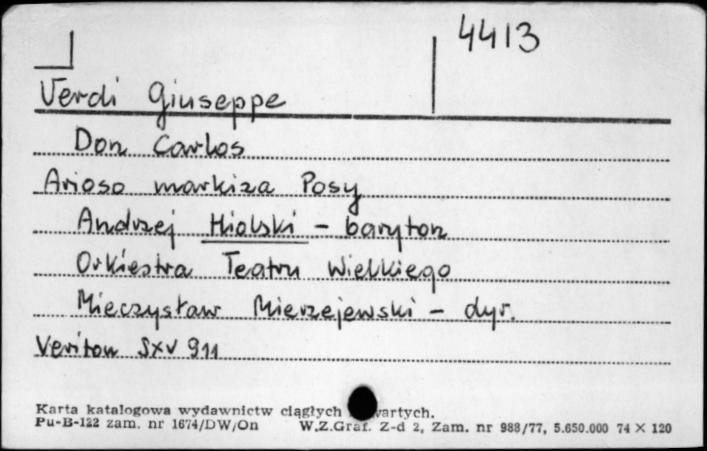 4413
Verdi Giuseppe
Don Carlos
Arioso markiza Posy
Andrzej Hiolski - baryton
Orkiestra Teatru Wielkiego
Mieczysław Mierzejewski - dyr.
Veriton SXV 911
Karta katalogowa wydawnictw ciągłych wartych.
Pu-B-122 zam. nr 1674/DW/On W.Z.Graf. Z-d 2, Zam. nr 988/77, 5.650.000 74 × 120